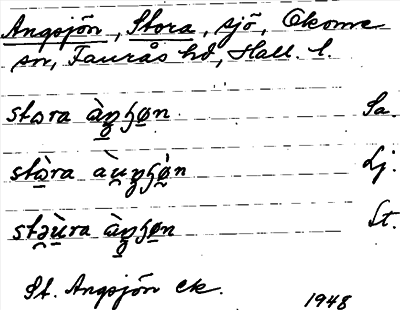 Angsjön, Stora, sjö, Okome
sn, Faurås hd, Hall. l.
stora àŋɧøn Sa.
stòra àu̯ŋɧø̀n Lj.
stəùra àŋɧøn St.
St. Angsjön ek.
1948